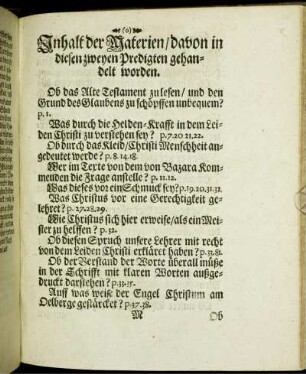 (o)
Inhalt der Materien/ davon in
diesen zweyen Predigten gehan-
delt worden.
Ob das Alte Testament zu lesen/ und den
Grund des Glaubens zu schöpffen unbequem?
p. 1.
Was durch die Helden-Krafft in dem Lei-
den Christi zu verstehen sey? p. 7. 20. 21. 22.
Ob durch das Kleid/ Christi Menschheit an-
gedeutet werde? p. 8. 14. 18.
Wer im Texte von dem von Bazara Kom-
menden die Frage anstelle? p. 11. 12.
Was dieses vor ein Schmuck sey? p. 19. 20. 31. 32.
Was Christus vor eine Gerechtigkeit ge-
lehret? p. 27. 28. 29.
Wie Christus sich hier erweise/ als ein Mei-
ster zu helffen? p. 32.
Ob diesen Spruch unsere Lehrer mit recht
von dem Leiden Christi erkläret haben? p. 33. 81.
Ob der Verstand der Worte überall müsse
in der Schrifft mit klaren Worten außge-
druckt darstehen? p. 33. 35.
Auff was weise der Engel Christum am
Oelberge gestärcket? p. 37. 38.
M Ob